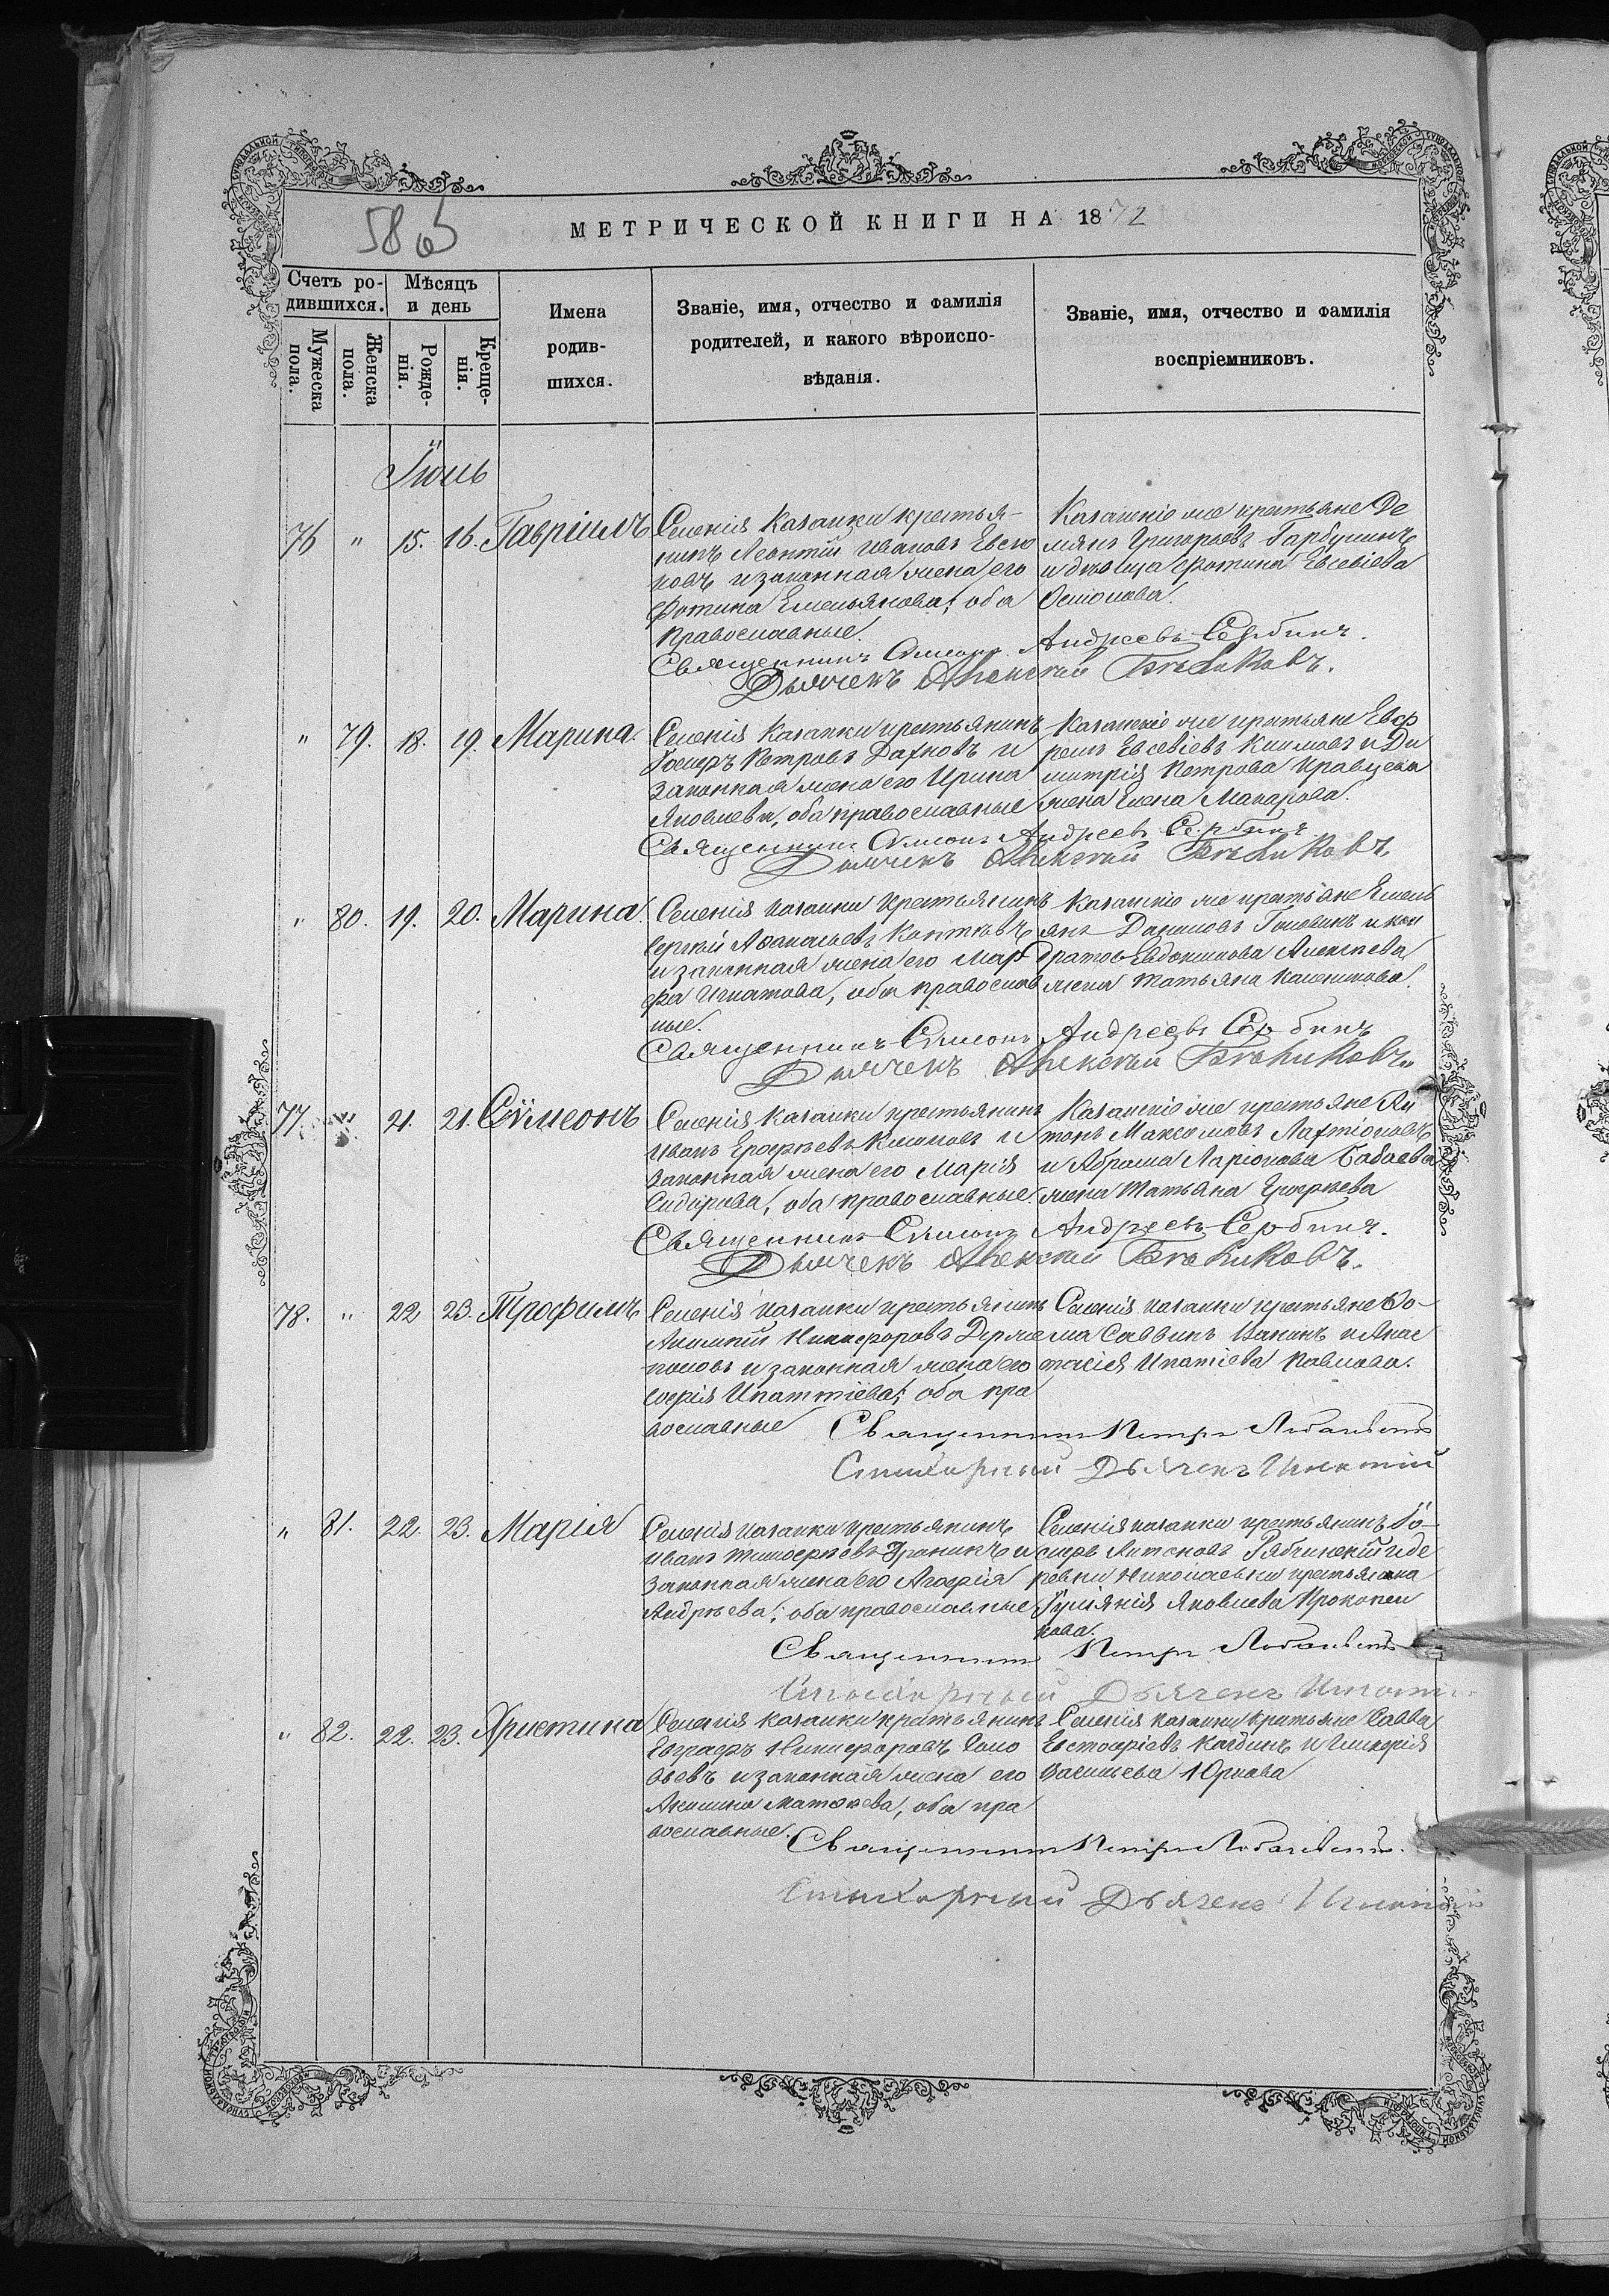 58 об
МЕТРИЧЕСКОЙ КНИГИ НА 1872
Счетъ родившихся.
Мужеска пола.
Женска пола.
Мѣсяцъ и день
Рожденія.
Крещенія.
Имена родившихся.
Званіе, имя, отчество и фамилія
родителей, и какого вѣроиспо-
вѣданія.
Званіе, имя, отчество и фамилія
воспріемниковъ.
76 " 15. 16. Гавріилъ
Селенія Казанки крестья-
нинъ Леонтій Ивановъ
и законная жена его
Фотина Емельянова, оба
православные.
Казанскіе же крестьяне Де
мянъ Григорьевъ Гарбузинъ
и дѣвица Фотина Евсевіева
Священникъ Симеонъ Андреевъ Сербинъ.
Дьячекъ Алексѣй
" 79. 18. 19. Марина.
Селенія Казанки крестьянинъ
Іосифъ Петровъ и
законная жена его Ирина
Яковлева, оба православные
Казанскіе же крестьяне Евф
ремъ Евсевіевъ Климовъ и Ди
митрія Петрова Кравцева
жена Елена Макарова.
Священникъ Симеонъ Андреевъ Сербинъ
Дьячекъ Алексѣй
" 80. 19. 20. Марина.
Селенія Казанки крестьянинъ
Сергѣй Афанасьевъ
и законная жена его Мар
фа Игнатова, оба православ
ные.
Казанскіе же крестьяне Емель
янъ Даниловъ Головинъ и Кон
дратов Евдокимова Алексеева
жена Татьяна Калинникова.
Священникъ Симеонъ Андреевъ Сербинъ
Дьячекъ Алексѣй
77. " 21. 21. Сѷмеонъ
Селенія Казанки крестьянинъ
Иванъ Ерофѣевъ Климовъ и
законная жена его Марія
Сидорова, оба православные.
Казанскіе же крестьяне Ан
тонъ Максимовъ
и Абрама Ларіонова Бабаева
жена Татьяна Ерофѣева
Священникъ Симеонъ Андреевъ Сербинъ.
Дьячекъ Алексѣй
78. " 22 23. Трофимъ
Селенія Казанки крестьянинъ
Никифоровъ
и законная жена его
Софія Ипаттіева, оба пра
вославные
Селенія Казанки крестьяне Ѳо-
ма Саввинъ Ванинъ и Анас
тасія Ипатіева Павлова.
Священникъ Петръ
Стихарный Дьячекъ Игнатій
" 81. 22. 23. Марія
Селенія Казанки крестьянинъ
Иванъ Тимоѳѣевъ и
законная жена его Агафія
Андрѣева, оба православные
Селенія Казанки крестьянинъ Іо-
сифъ Антоновъ Рябчинскій и де
ревни Николаевки крестьянка
Іуліанія Яковлева Прокопен
кова.
Священникъ Петръ
Стихарный Дьячекъ
" 82. 22. 23. Христина
Селенія Казанки крестьянинъ
Евграфъ Никифоровъ Соло
вьевъ и законная жена его
Акилина Матвѣева, оба пра
вославные.
Селенія Казанки крестьяне Савва
Евстафіевъ и Гликерія
Васильева Юркова
Священникъ Петръ
Стихарный Дьячекъ Игнатій